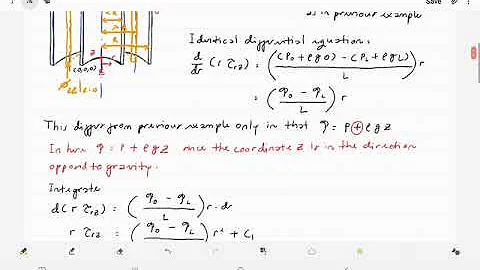 as in previous example
Identical differential equations:
d/dr (r τrz) = ((P0 + ρg0) - (PL + ρgL) / L) r
= (𝒫0 - 𝒫L / L) r
This differ from previous example only in that 𝒫 = P + ρgz
In here 𝒫 = P + ρgz since the coordinate z is in the direction
opposed to gravity.
Integrate
d(r τrz) = (𝒫0 - 𝒫L / L) r · dr
r τrz = (𝒫0 - 𝒫L) r² + C1
(0,0,0)